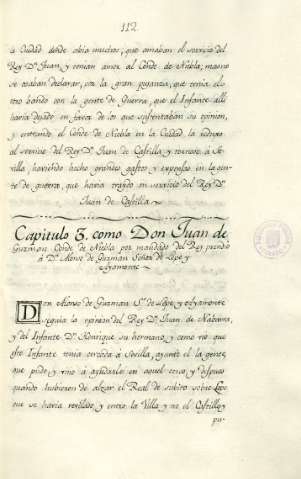 112
la Ciudad donde abia muchos, que amaban el servicio del
Rey Dⁿ Juan, y tenian amor al Conde de Niebla, mas no
se osaban declarar, por la gran pujanza, que tenia el
otro bando con la gente de Guerra, que el Infante alli
havia dejado en favor de los que sustentaban su opinion,
y entrando el Conde de Niebla en la Ciudad, la redujo
al servicio del Rey Dⁿ Juan de Castilla y tornose à Se-
villa, haviendo hecho grandes gastos y expensas en la gen-
te de guerra, que havia traido en servicio del Rey Dⁿ
Juan de Castilla
Capitulo 3. como Don Juan de
Guzman Conde de Niebla por mandado del Rey prendió
à Dⁿ Alonso de Guzman Señor de Lepe y
Ayamonte
Don Alonso de Guzman Sʳ de Lepe, y Ayamonte
seguia la opinion del Rey Dⁿ Juan de Nabarra,
y del Infante Dⁿ Henrique su hermano, y como vio que
este Infante tenia cercada à Sevilla, ayuntó la gente,
que pudo y vino à ayudarle en aquel cerco, y despues
quando hubieron de alzar el Real de sobre
que se havia y entro la Villa y no el Castillo, y